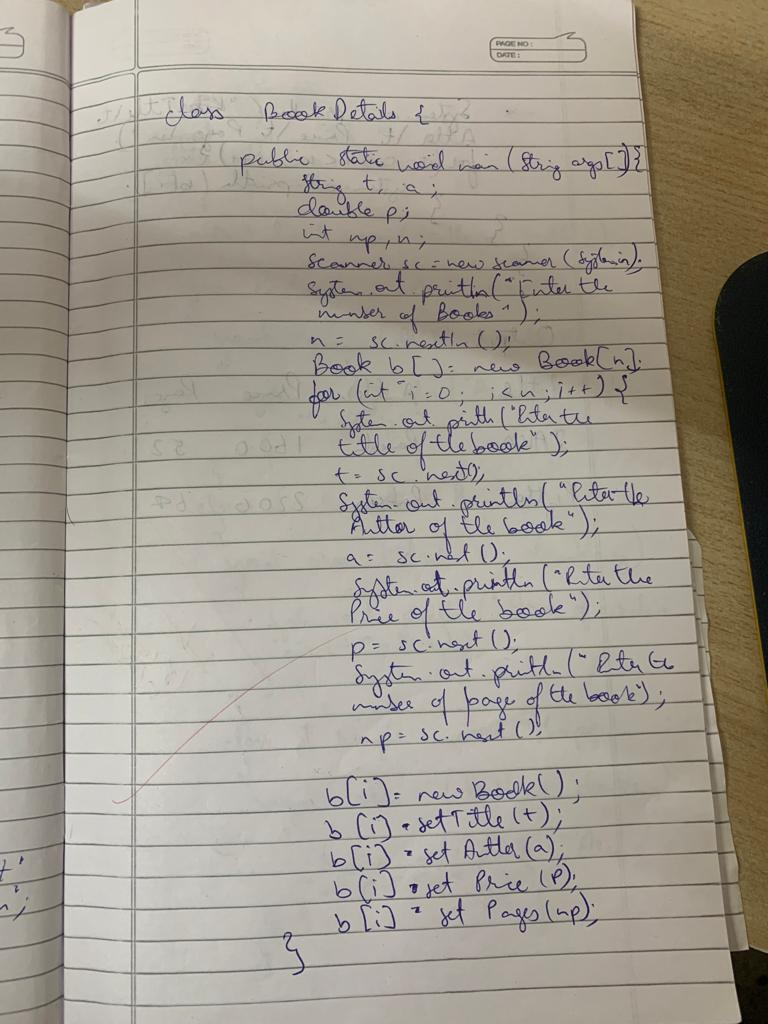 PAGE NO :
DATE :
class BookDetails {
public static void main (String args[]){
String t, a;
double p;
int np, n;
Scanner sc = new Scanner (System.in);
System.out.println("Enter the
number of Books");
n = sc.nextln();
Book b[] = new Book[n];
for (int i=0; i<n; i++) {
System.out.println("Enter the
title of the book");
t = sc.next();
System.out.println("Enter the
Author of the book");
a = sc.next();
System.out.println("Enter the
Price of the book");
p = sc.next();
System.out.println("Enter the
number of page of the book");
np = sc.next();
b[i] = new Book();
b[i].setTitle(t);
b[i].set Author(a);
b[i].set Price (p);
b[i].set Pages(np);
}